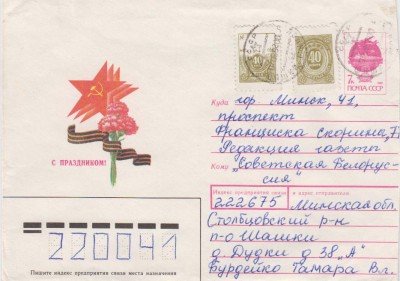 40
40
7к
ПОЧТА СССР
С ПРАЗДНИКОМ!
Куда гор Минск, 41,
проспект
Франциска Скорина, 77
Редакция газеты
Кому „Советская Белорус-
сия"
Индекс предприятия связи и адрес отправителя
222675 Минская обл.
Столбцовский р-н
п-о Шашки
д. Дудки д 38 „А"
Бурдейко Тамара Вл.
220041
Пишите индекс предприятия связи места назначения